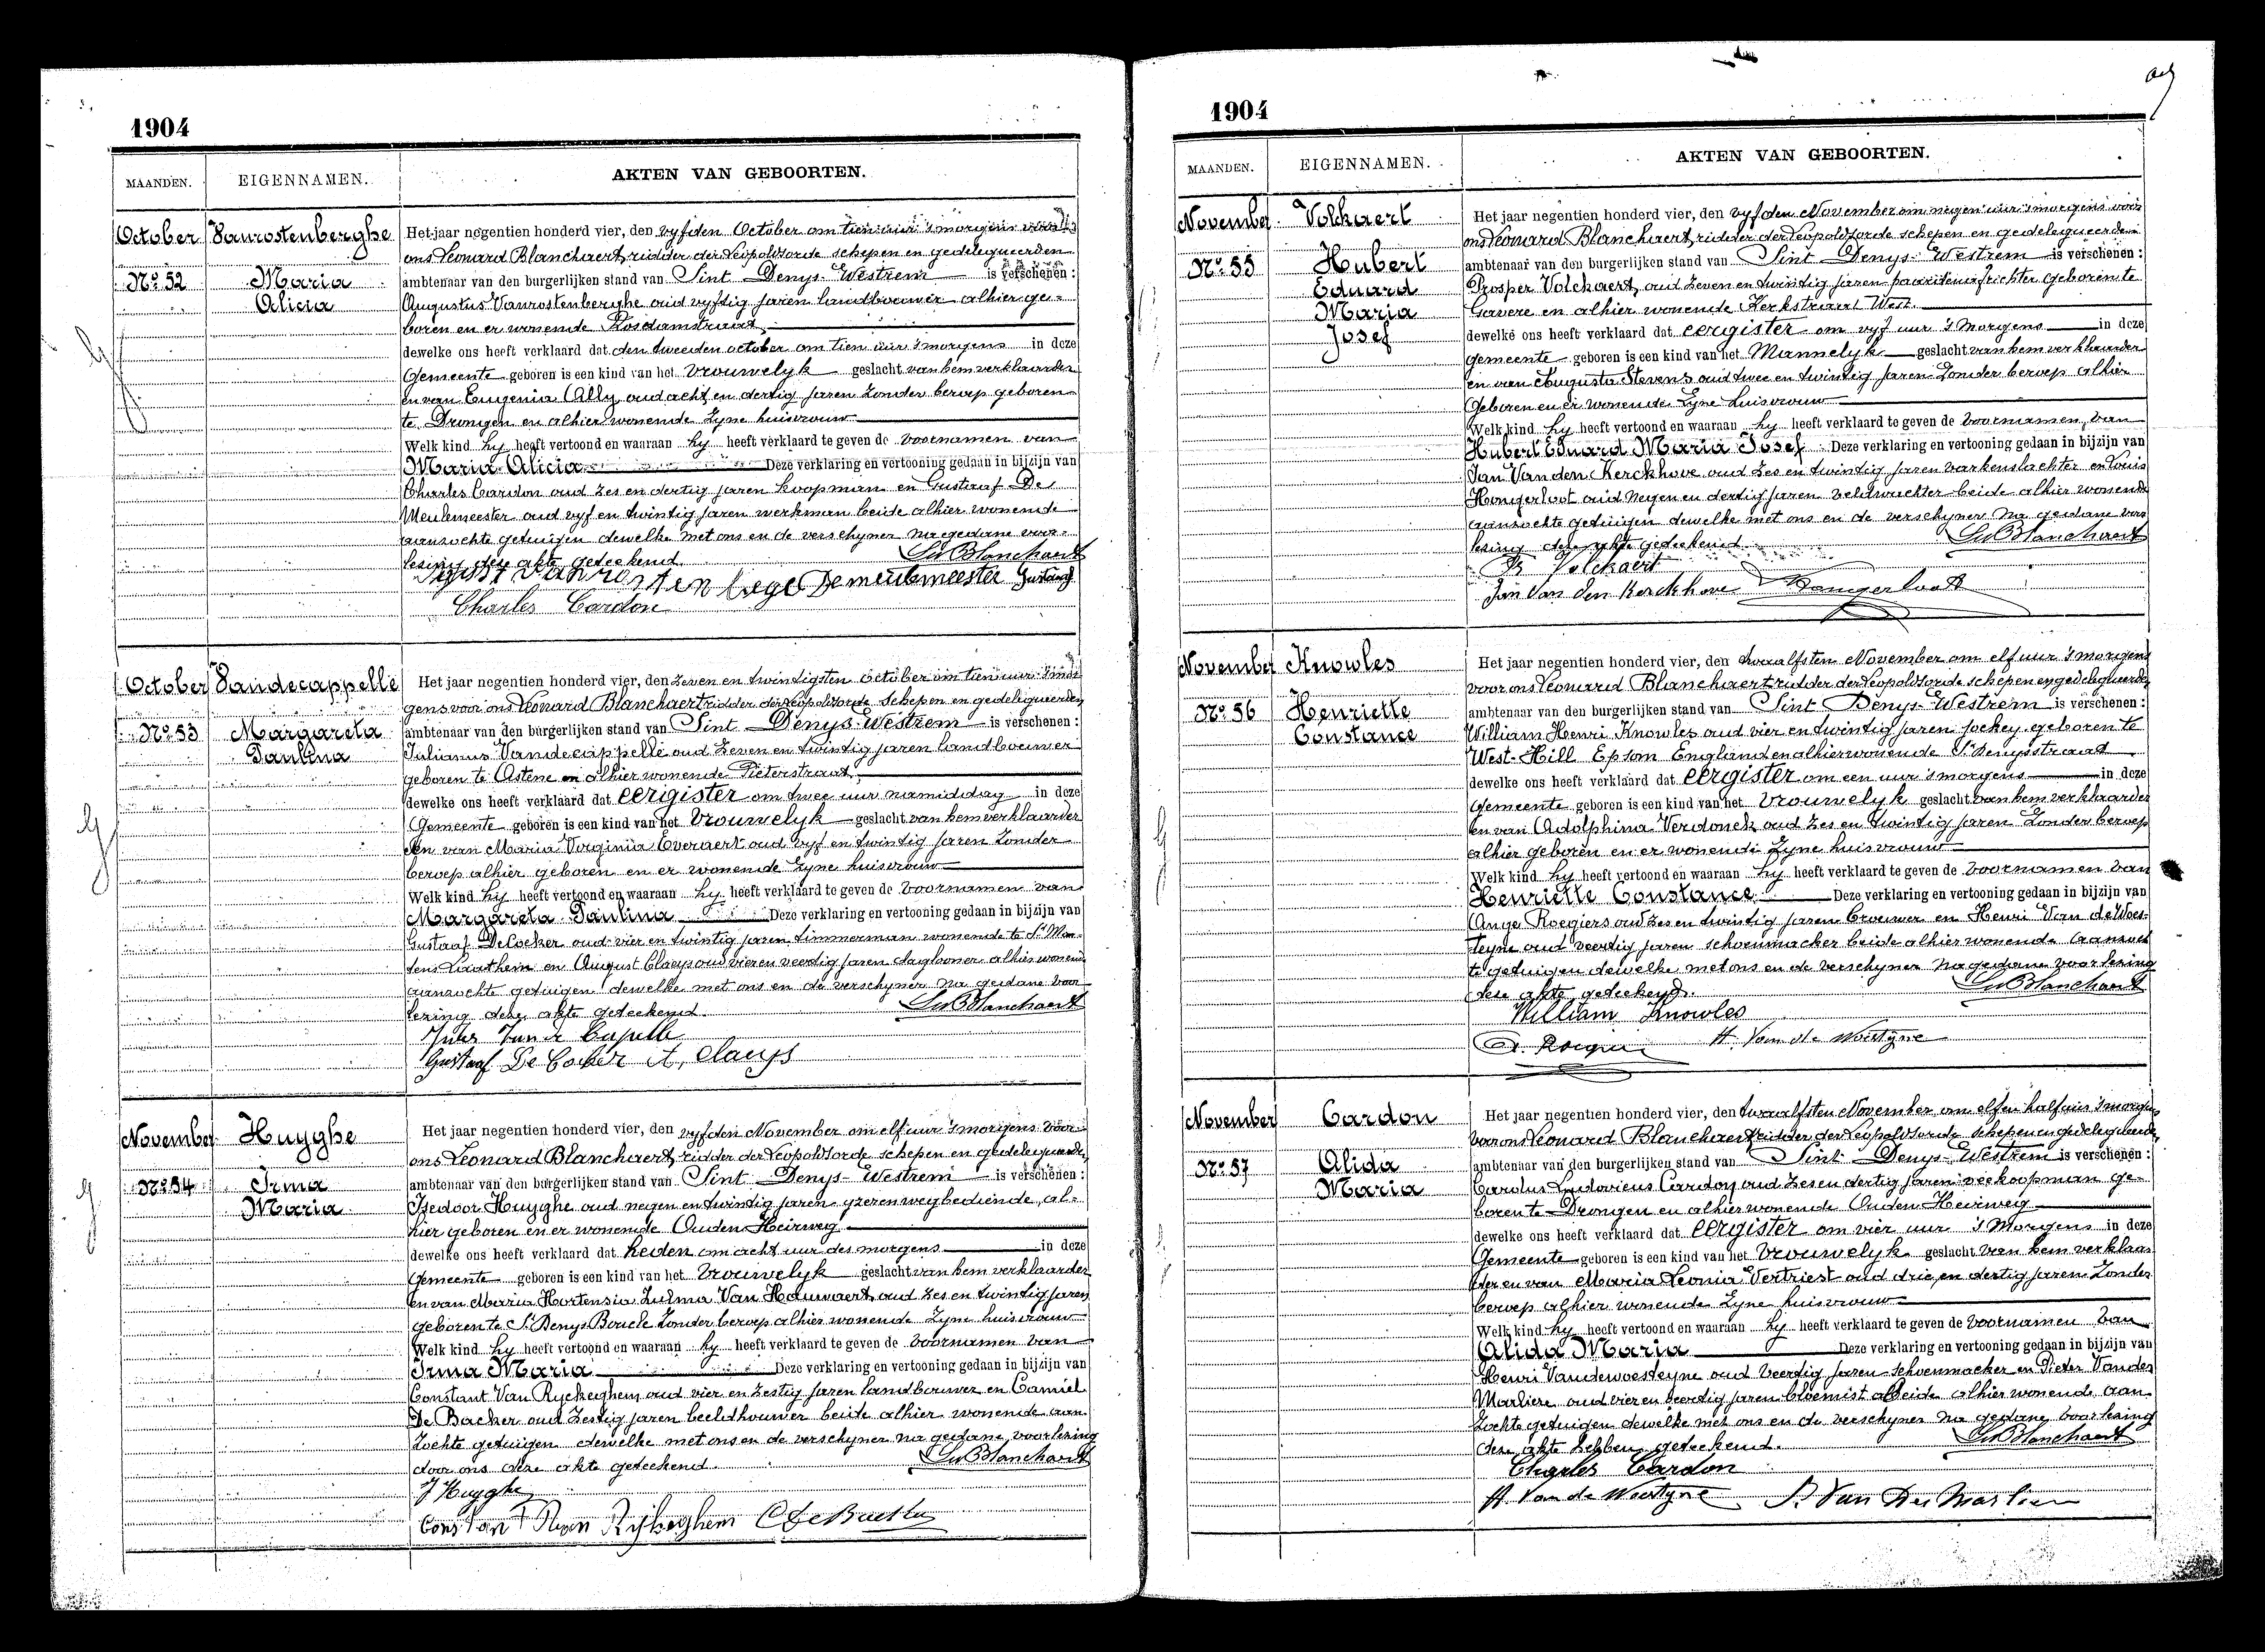 1904
MAANDEN. EIGENNAMEN. AKTEN VAN GEBOORTEN.
October Vanrostenberghe
Nº 52 Maria
Alicia
Het jaar negentien honderd vier, den vyfden October om tien uur 's morgens voor
ons Leonard Blanchaert, ridder der Leopoldsorde schepen en gedelegueerden
ambtenaar van den burgerlijken stand van Sint Denys-Westrem is verschenen :
Augustus Vanrostenberghe oud vyftig jaren landbouwer alhier ge-
boren en er wonende Rosdamstraat
dewelke ons heeft verklaard dat den tweeden october om tien uur 's morgens in deze
Gemeente geboren is een kind van het Vrouwelyk geslacht van hem verklaarder
en van Eugenia Ally oud acht en dertig jaren zonder beroep geboren
te Drongen en alhier wonende Zyne huisvrouw
Welk kind hy heeft vertoond en waaraan hy heeft verklaard te geven de voornamen van
Maria Alicia Deze verklaring en vertooning gedaan in bijzijn van
Charles Cardon oud zes en dertig jaren koopman en Gustaaf De
Meulemeester oud vyf en twintig jaren werkman beide alhier wonende
aanzochte getuigen dewelke met ons en de verschyner na gedane voor-
lezing deze akte geteekend
Ld Blanchaert
Demeulemeester Gustaaf
Charles Cardon
October Vandecappelle
Nº 53 Margareta
Paulina
Het jaar negentien honderd vier, den zeven en twintigsten October om tien uur 's mor
gens voor ons Leonard Blanchaert ridder der Leopoldsorde Schepen en gedelegueerden
ambtenaar van den burgerlijken stand van Sint Denys-Westrem is verschenen :
Julianus Vandecappelle oud zeven en twintig jaren landbouwer
geboren te Astene en alhier wonende Pieterstraat
dewelke ons heeft verklaard dat eergister om twee uur namiddag in deze
Gemeente geboren is een kind van het Vrouwelyk geslacht van hem verklaarder
en van Maria Virginia Everaert oud vyf en twintig jaren zonder
beroep alhier geboren en er wonende zyne huisvrouw
Welk kind hy heeft vertoond en waaraan hy heeft verklaard te geven de voornamen van
Margareta Paulina Deze verklaring en vertooning gedaan in bijzijn van
Gustaaf DeCocker oud vier en twintig jaren timmerman wonende te St Mar-
tens Laathem en August Claeys oud vier en veertig jaren daglooner alhier wonende
aanzochte getuigen dewelke met ons en de verschyner na gedane voor
lezing deze akte geteekend.
Ld Blanchaert
Jules Van de Capelle
Gustaaf De Cocker A, Claeys
November Huyghe
Nº 54 Irma
Maria
Het jaar negentien honderd vier, den vyfden November om elf uur 's morgens voor
ons Leonard Blanchaert, ridder der Leopoldsorde schepen en gedelegueerden
ambtenaar van den burgerlijken stand van Sint Denys-Westrem is verschenen :
Isedoor Huyghe oud negen en twintig jaren yzerenwegbediende, al-
hier geboren en er wonende Ouden Heirweg
dewelke ons heeft verklaard dat heden om acht uur des morgens in deze
Gemeente geboren is een kind van het Vrouwelyk geslacht van hem verklaarder
en van Maria Hortensia Zulma Van Hauwaert oud zes en twintig jaren
geboren te St Denys Boucle zonder beroep alhier wonende zyne huisvrouw
Welk kind hy heeft vertoond en waaraan hy heeft verklaard te geven de voornamen van
Irma Maria Deze verklaring en vertooning gedaan in bijzijn van
Constant Van Ryckeghem oud vier en zestig jaren landbouwer en Camiel
De Backer oud zestig jaren beeldhouwer beide alhier wonende aan-
zochte getuigen dewelke met ons en de verschyner na gedane voorlezing
door ons deze akte geteekend.
Ld Blanchaert
J Huyghe
Constant Van Rijkeghem C DeBacker
1904
MAANDEN. EIGENNAMEN. AKTEN VAN GEBOORTEN.
November Volckaert
Nº 55 Hubert
Eduard
Maria
Josef
Het jaar negentien honderd vier, den vyfden November om negen uur 's morgens voor
ons Leonard Blanchaert, ridder der Leopoldsorde schepen en gedelegueerden
ambtenaar van den burgerlijken stand van Sint Denys-Westrem is verschenen :
Prosper Volckaert, oud zeven en twintig jaren paardenafrichter geboren te
Gavere en alhier wonende Kerkstraat West
dewelke ons heeft verklaard dat eergister om vyf uur 's Morgens in deze
gemeente geboren is een kind van het Mannelyk geslacht van hem verklaarder
en van Augusta Stevens oud twee en twintig jaren zonder beroep alhier
geboren en er wonende Zyne huisvrouw
Welk kind hy heeft vertoond en waaraan hy heeft verklaard te geven de voornamen van
Hubert Eduard Maria Josef Deze verklaring en vertooning gedaan in bijzijn van
Jan Van den Kerckhove oud zes en twintig jaren varkenslachter en Louis
Hongerloot oud negen en dertig jaren veldwachter beide alhier wonende
aanzochte getuigen dewelke met ons en de verschyner na gedane voor
lezing deze akte geteekend
Ld Blanchaert
P Volckaert
Jan Van den Kerckhove Hongerloott
November Knowles
Nº 56 Henriette
Constance
Het jaar negentien honderd vier, den twaalfsten November om elf uur 's morgens
voor ons Leonard Blanchaert ridder der Leopoldsorde schepen en gedelegueerden
ambtenaar van den burgerlijken stand van Sint Denys-Westrem is verschenen :
William Henri Knowles oud vier en twintig jaren jockey geboren te
West-Hill Epsom England en alhier wonende St Denysstraat
dewelke ons heeft verklaard dat eergister om een uur 's morgens in deze
Gemeente geboren is een kind van het Vrouwelyk geslacht van hem verklaarder
en van Adolphina Verdonck oud zes en twintig jaren zonder beroep
alhier geboren en er wonende Zyne huisvrouw
Welk kind hy heeft vertoond en waaraan hy heeft verklaard te geven de voornamen van
Henriette Constance Deze verklaring en vertooning gedaan in bijzijn van
Ange Roegiers oud zes en twintig jaren brouwer en Henri Van de Woes-
teyne oud veertig jaren schoenmacker beide alhier wonende aanzoch
te getuigen dewelke met ons en de verschyner na gedane voorlezing
deze akte geteekend.
Ld Blanchaert
William Knowles
H. Van de Woestyne
November Cardon
Nº 57 Alida
Maria
Het jaar negentien honderd vier, den twaalfsten November om elf en half uur 's morgens
voor ons Leonard Blanchaert ridder der Leopoldsorde schepen en gedelegueerden
ambtenaar van den burgerlijken stand van Sint Denys-Westrem is verschenen :
Carolus Ludovicus Cardon oud zes en dertig jaren veekoopman ge-
boren te Drongen en alhier wonende Ouden Heirweg
dewelke ons heeft verklaard dat eergister om vier uur 's Morgens in deze
Gemeente geboren is een kind van het Vrouwelyk geslacht van hem verklaar
der en van Maria Leonia Vertriest oud drie en dertig jaren zonder
beroep alhier wonende Zyne huisvrouw
Welk kind hy heeft vertoond en waaraan hy heeft verklaard te geven de voornamen van
Alida Maria Deze verklaring en vertooning gedaan in bijzijn van
Henri Vandewoesteyne oud veertig jaren schoenmacker en Pieter Vander
Marliere oud vier en veertig jaren bloemist beide alhier wonende aan-
zochte getuigen dewelke met ons en de verschyner na gedane voorlezing
deze akte hebben geteekend.
Ld Blanchaert
Charles Cardon
H Van de Woestyne P. Van Der Marlier